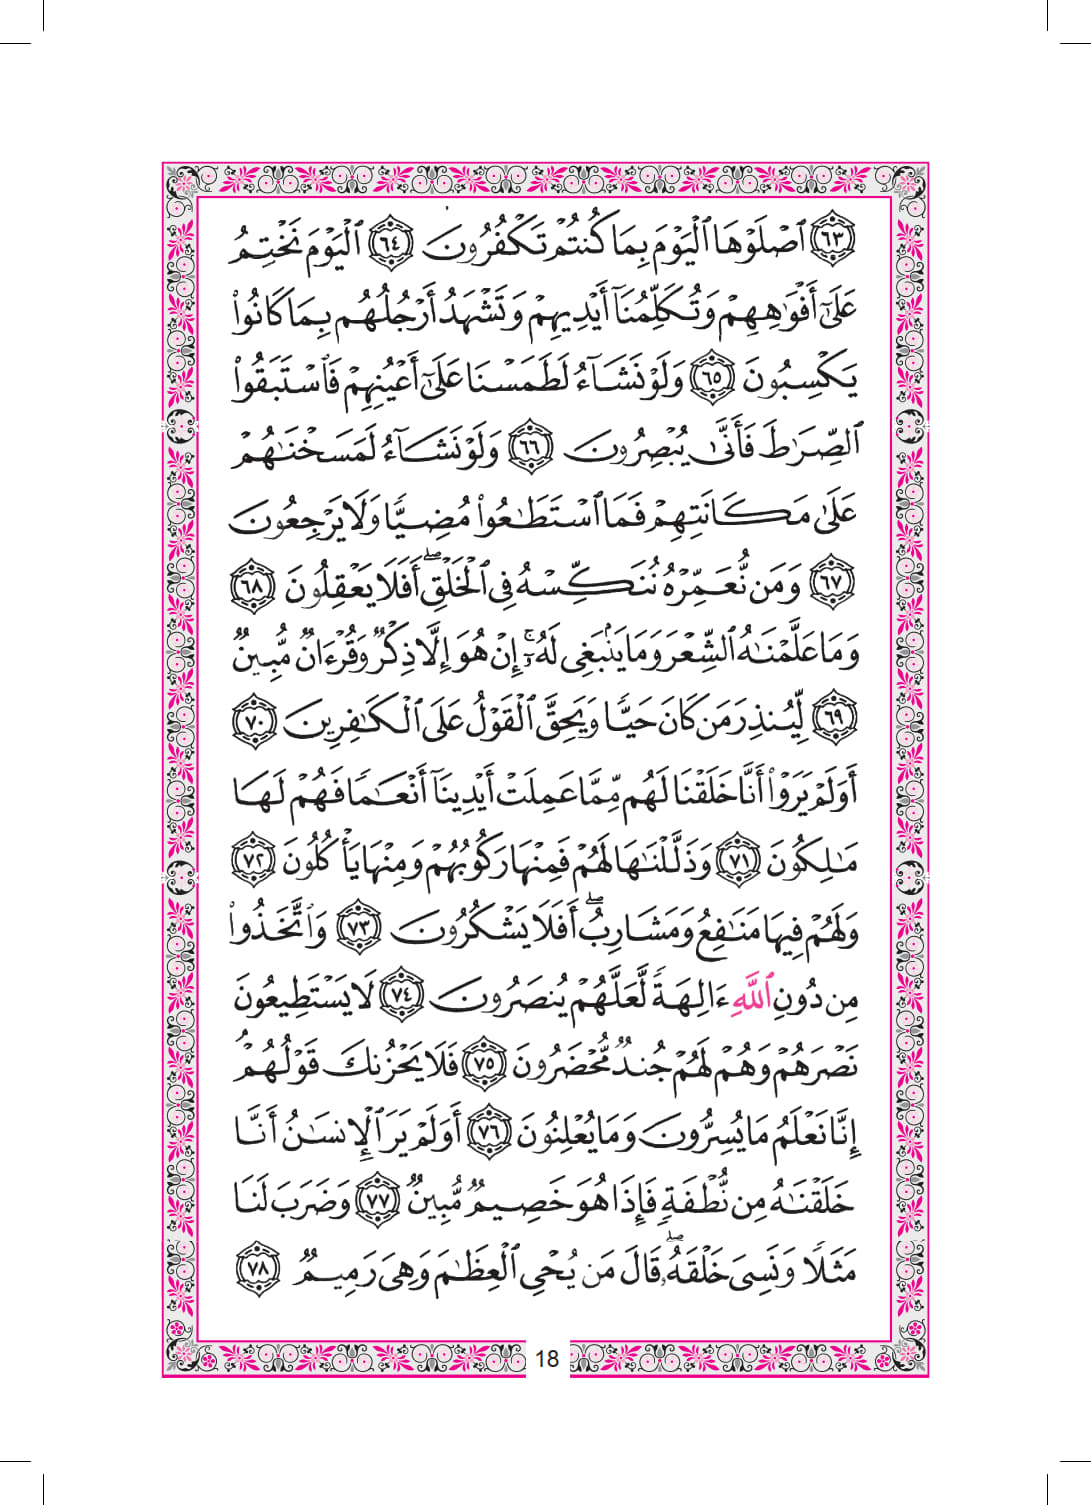 ﴿٦٣﴾ ٱصْلَوْهَا ٱلْيَوْمَ بِمَا كُنتُمْ تَكْفُرُونَ ﴿٦٤﴾ ٱلْيَوْمَ نَخْتِمُ
عَلَىٰٓ أَفْوَٰهِهِمْ وَتُكَلِّمُنَآ أَيْدِيهِمْ وَتَشْهَدُ أَرْجُلُهُم بِمَا كَانُوا۟
يَكْسِبُونَ ﴿٦٥﴾ وَلَوْ نَشَآءُ لَطَمَسْنَا عَلَىٰٓ أَعْيُنِهِمْ فَٱسْتَبَقُوا۟
ٱلصِّرَٰطَ فَأَنَّىٰ يُبْصِرُونَ ﴿٦٦﴾ وَلَوْ نَشَآءُ لَمَسَخْنَٰهُمْ
عَلَىٰ مَكَانَتِهِمْ فَمَا ٱسْتَطَٰعُوا۟ مُضِيًّا وَلَا يَرْجِعُونَ
﴿٦٧﴾ وَمَن نُّعَمِّرْهُ نُنَكِّسْهُ فِى ٱلْخَلْقِ ۖ أَفَلَا يَعْقِلُونَ ﴿٦٨﴾
وَمَا عَلَّمْنَٰهُ ٱلشِّعْرَ وَمَا يَنۢبَغِى لَهُۥٓ ۚ إِنْ هُوَ إِلَّا ذِكْرٌ وَقُرْءَانٌ مُّبِينٌ
﴿٦٩﴾ لِّيُنذِرَ مَن كَانَ حَيًّا وَيَحِقَّ ٱلْقَوْلُ عَلَى ٱلْكَٰفِرِينَ ﴿٧٠﴾
أَوَلَمْ يَرَوْا۟ أَنَّا خَلَقْنَا لَهُم مِّمَّا عَمِلَتْ أَيْدِينَآ أَنْعَٰمًا فَهُمْ لَهَا
مَٰلِكُونَ ﴿٧١﴾ وَذَلَّلْنَٰهَا لَهُمْ فَمِنْهَا رَكُوبُهُمْ وَمِنْهَا يَأْكُلُونَ ﴿٧٢﴾
وَلَهُمْ فِيهَا مَنَٰفِعُ وَمَشَارِبُ ۖ أَفَلَا يَشْكُرُونَ ﴿٧٣﴾ وَٱتَّخَذُوا۟
مِن دُونِ ٱللَّهِ ءَالِهَةً لَّعَلَّهُمْ يُنصَرُونَ ﴿٧٤﴾ لَا يَسْتَطِيعُونَ
نَصْرَهُمْ وَهُمْ لَهُمْ جُندٌ مُّحْضَرُونَ ﴿٧٥﴾ فَلَا يَحْزُنكَ قَوْلُهُمْ ۘ
إِنَّا نَعْلَمُ مَا يُسِرُّونَ وَمَا يُعْلِنُونَ ﴿٧٦﴾ أَوَلَمْ يَرَ ٱلْإِنسَٰنُ أَنَّا
خَلَقْنَٰهُ مِن نُّطْفَةٍ فَإِذَا هُوَ خَصِيمٌ مُّبِينٌ ﴿٧٧﴾ وَضَرَبَ لَنَا
مَثَلًا وَنَسِىَ خَلْقَهُۥ ۖ قَالَ مَن يُحْىِ ٱلْعِظَٰمَ وَهِىَ رَمِيمٌ ﴿٧٨﴾
18